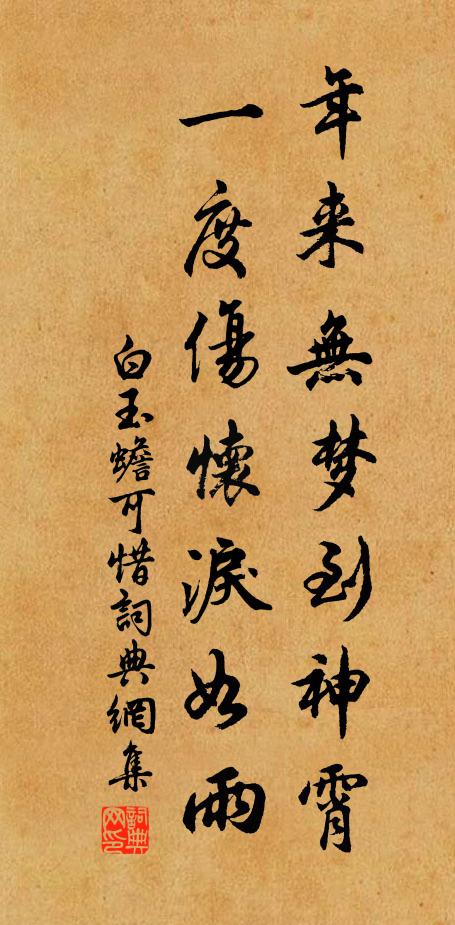 年来無梦到神霄
一度傷懷淚如雨
白玉蟾可惜詞典網集
詞典网印